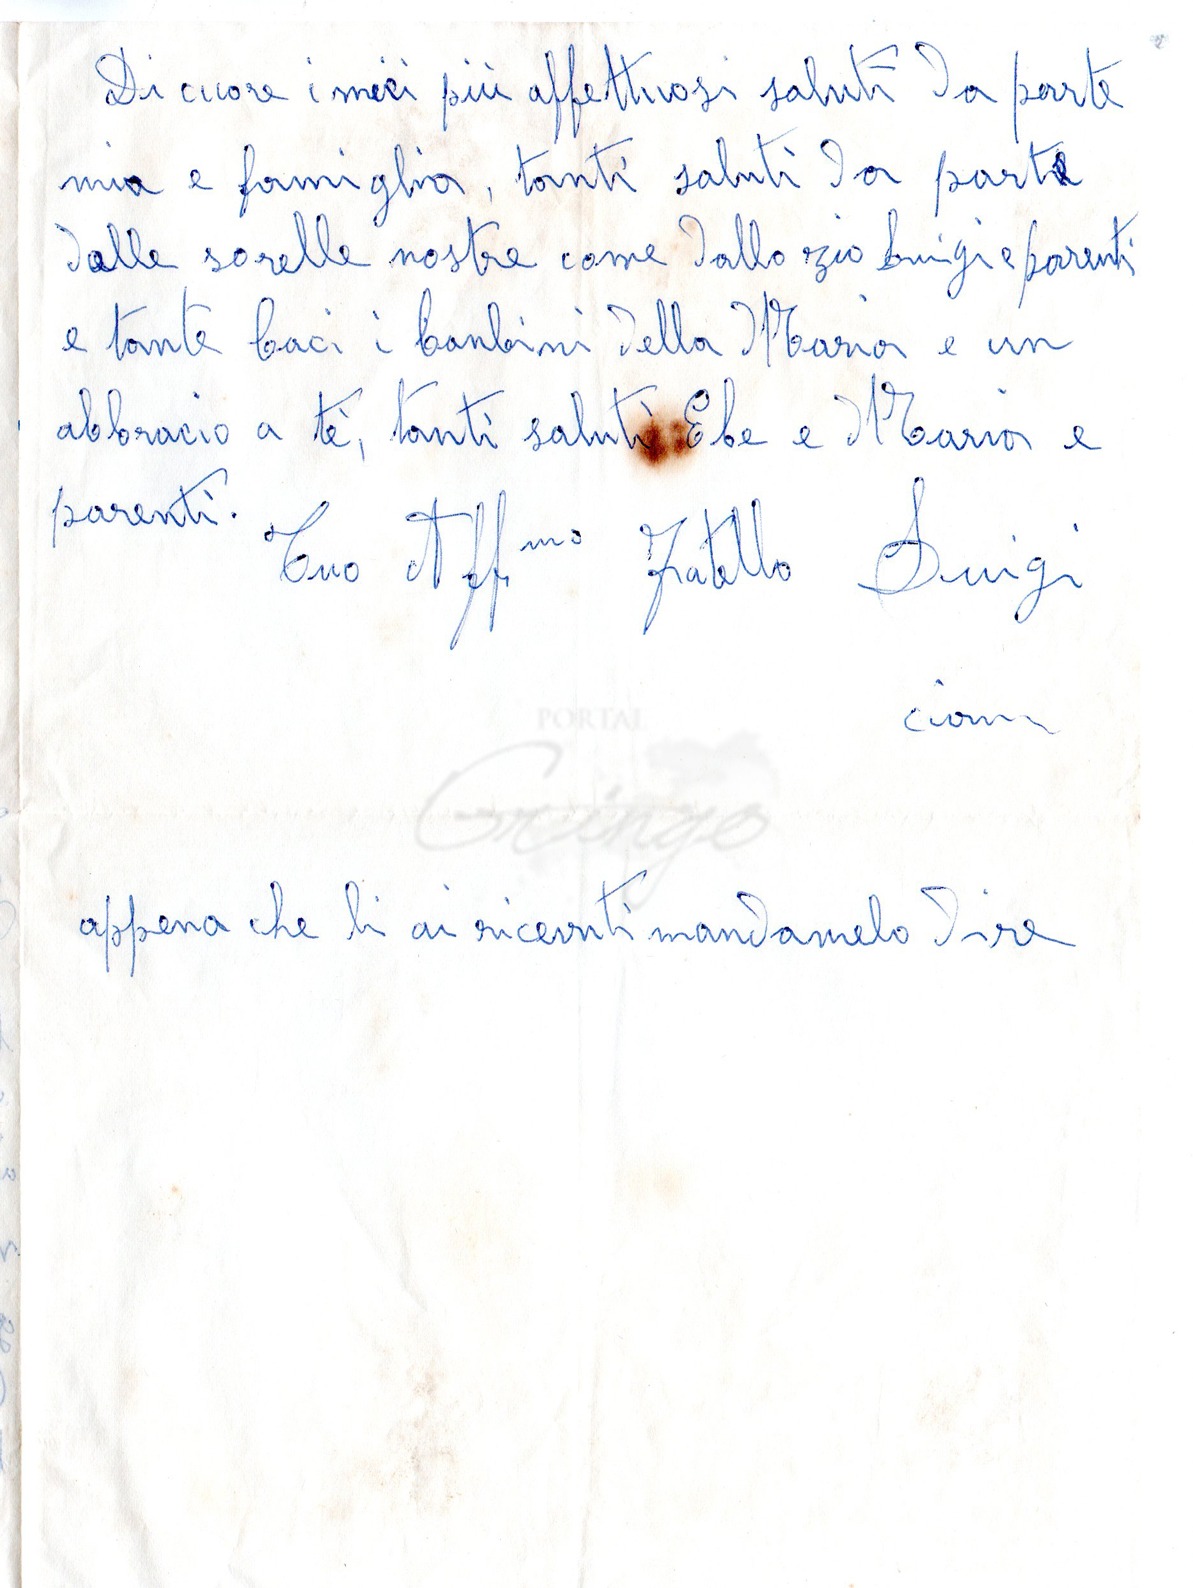 Di cuore i miei più affettuosi saluti da parte
mia e famiglia, tanti saluti da parte
dalle sorelle nostre come dallo zio Luigi e parenti
e tante baci i banbini della Maria e un
abbracio a tè, tanti saluti Ebe e Maria e
parenti.
Tuo Aff.mo Fratello Luigi
PORTAL
Gringo
appena che li ai ricevuti mandamelo dire